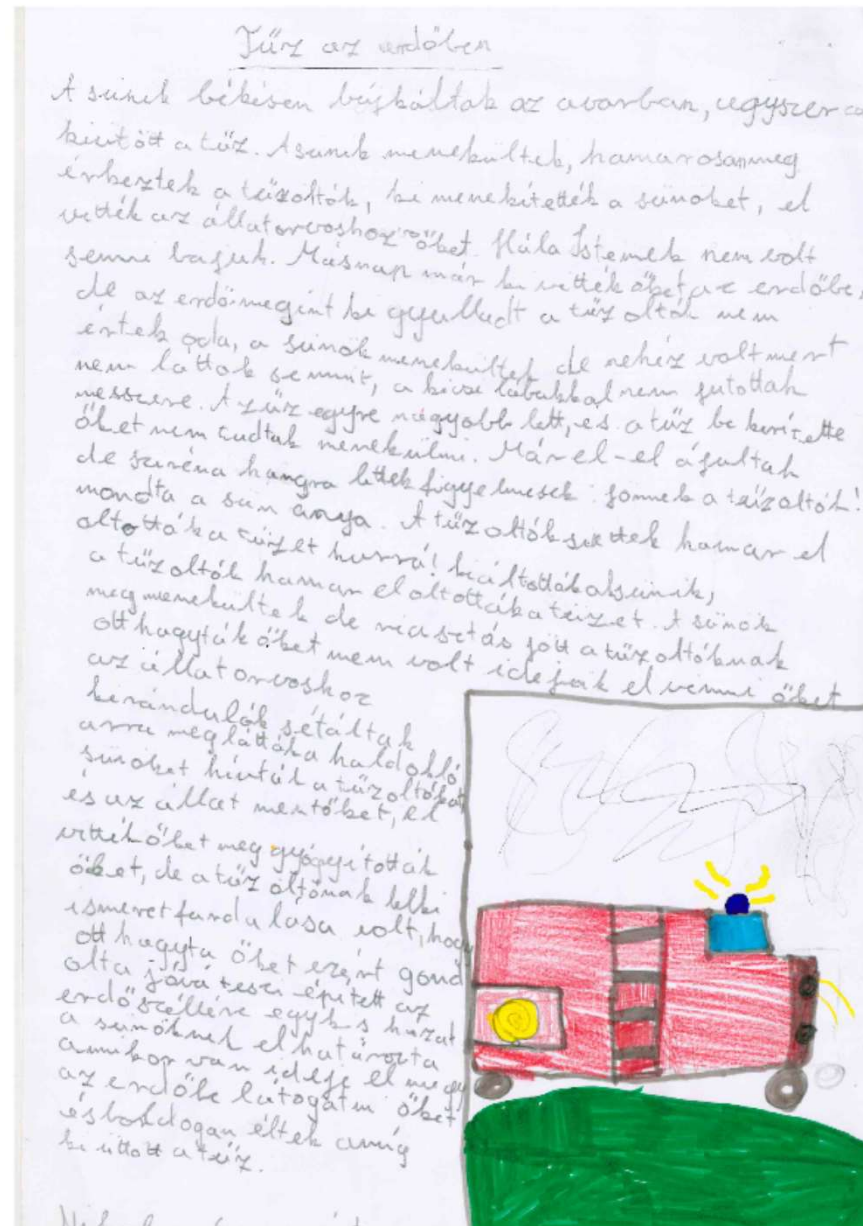 Tűz az erdőben
A sünik békésen bújkáltak az avarban, egyszer
kiütött a tűz. A sünik menekültek, hamarosan meg
érkeztek a tűzoltók, ki menekítették a sünöket, el
vitték az állatorvoshoz őket. Hála Istennek nem volt
semmi bajuk. Másnap már ki vitték őket az erdőbe,
de az erdő megint ki gyulladt a tűzoltók nem
értek oda, a sünök menekültek de nehéz volt mert
nem láttak semmit, a kicsi lábukkal nem jutottak
messzire. A tűz egyre nagyobb lett, és a tűz be kerítette
őket nem tudtak menekülni. Már el-el ájultak
de sziréna hangra lettek figyelmesek: jönnek a tűzoltók!
mondta a sün anya. A tűzoltók siettek hamar el
oltották a tüzet hurrá! kiáltották a sünik,
a tűzoltók hamar el oltották a tüzet. A sünök
meg menekültek de riasztás jött a tűzoltóknak
ott hagyták őket nem volt idejük el vinni őket
az állatorvoshoz
kirándulók sétáltak
arra meglátták a haldokló
sünöket hívták a tűzoltókat
és az állat mentőket, el
vitték őket meg gyógyították
őket, de a tűz oltónak lelki
ismeret furdalása volt, hogy
ott hagyta őket ezért gond
olta jóvá teszi épített az
erdő szélére egy kis házat
a sünöknek elhatározta
amikor van ideje el megy
az erdőbe látogatni őket
és boldogan éltek amíg
ki ütött a tűz.